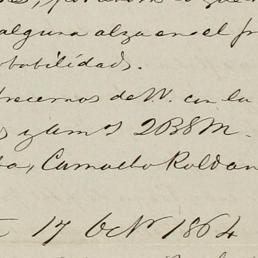 alguna alza en el fr
babilidad.
frecernos de V. con la
s y am s 2BSM.
ba, Camacho Roldan
17 Oct 1864